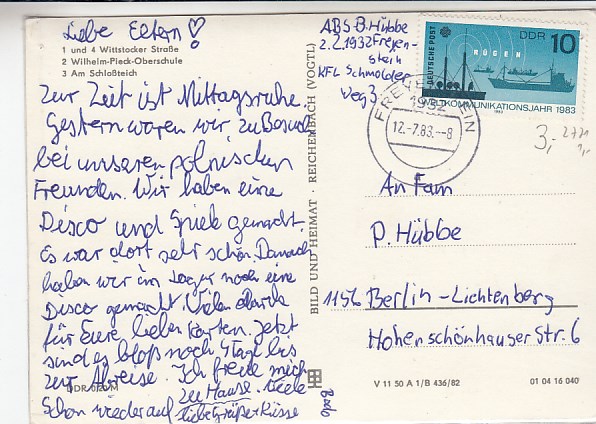 Liebe Eltern!
1 und 4 Wittstocker Straße
2 Wilhelm-Pieck-Oberschule
3 Am Schloßteich
Zur Zeit ist Mittagsruhe.
Gestern waren wir zu Besuch
bei unseren polnischen
Freunden. Wir haben eine
Disco und Spiele gemacht.
Es war dort sehr schön. Danach
haben wir im Lager noch eine
Disco gemacht. Vielen Dank
für Eure lieben Karten. Jetzt
sind es bloß noch 9 Tage bis
zur Abreise. Ich freue mich
schon wieder auf zu Hause. Viele
liebe Grüße + Küsse
Bodo
DDR 0,20 M
BILD UND HEIMAT · REICHENBACH (VOGTL)
ABS B. Hübbe
2.2.1932 Freyen-
stein
KFL Schmolder
Weg 3
DEUTSCHE POST
DDR 10
RÜGEN
WELTKOMMUNIKATIONSJAHR 1983
1983
FREYENSTEIN
1932
12.-7.83.-8
3,-
An Fam
P. Hübbe
1156 Berlin-Lichtenberg
Hohenschönhauser Str. 6
V 11 50 A 1/B 436/82
01 04 16 040